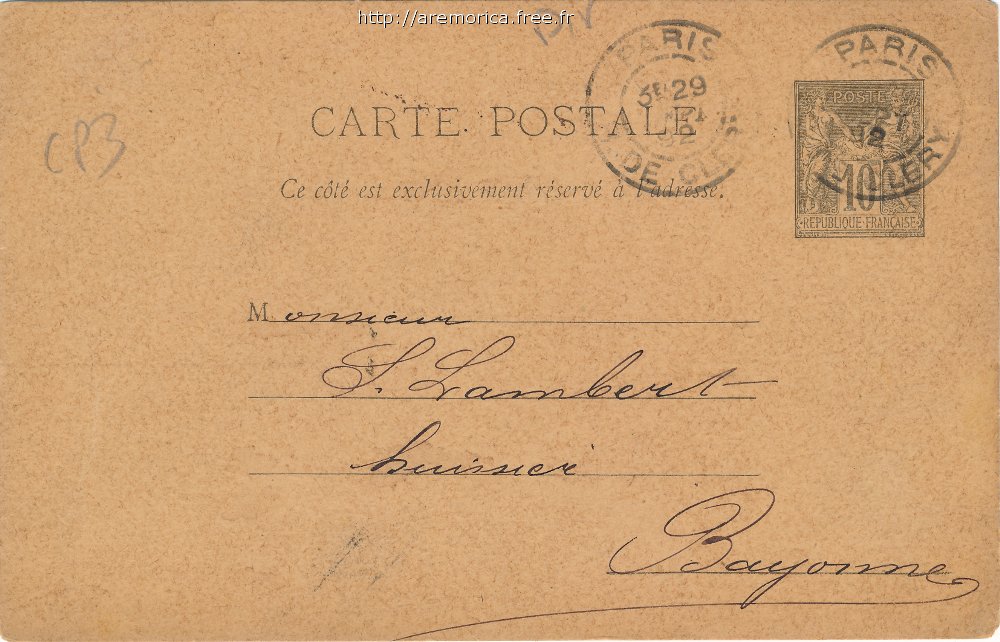 http://aremorica.free.fr
PARIS
5E 29
92
DE CLERY
PARIS
92
CLERY
POSTE
10
REPUBLIQUE FRANÇAISE
CP3
CARTE POSTALE
Ce côté est exclusivement réservé à l'adresse.
Monsieur
S. Lambert
huissier
Bayonne